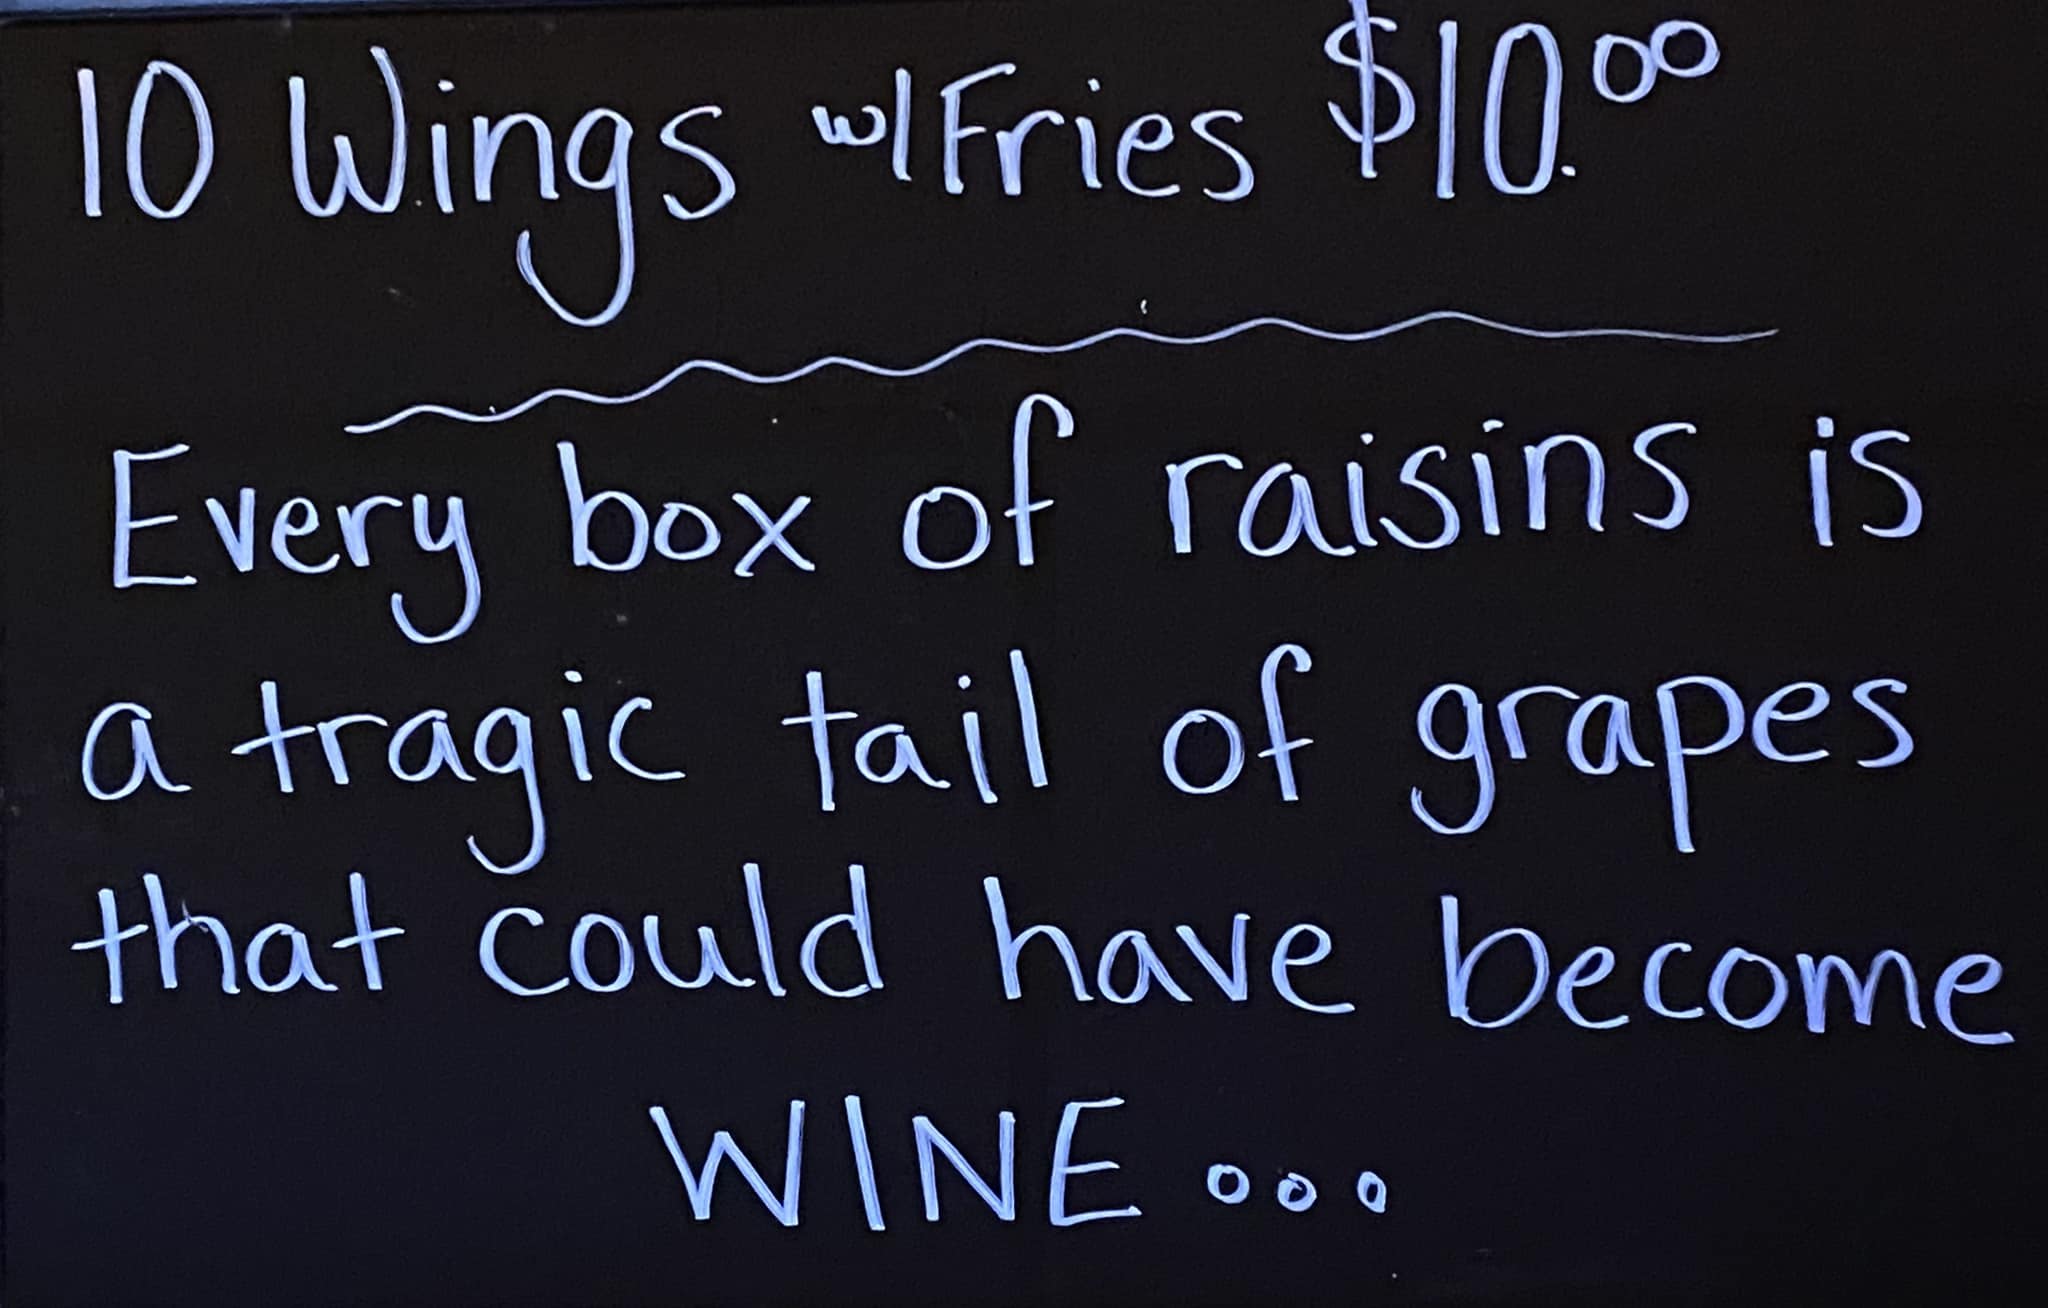 10 Wings w/Fries $10.00
Every box of raisins is
a tragic tail of grapes
that could have become
WINE...